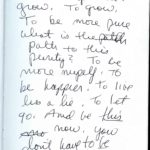 grow. To grow.
To be more pure
what is the path
path to this
purity? To be
more myself. To
be happier. To live
less a lie. To let
go. And be this
now, you
don't have to be